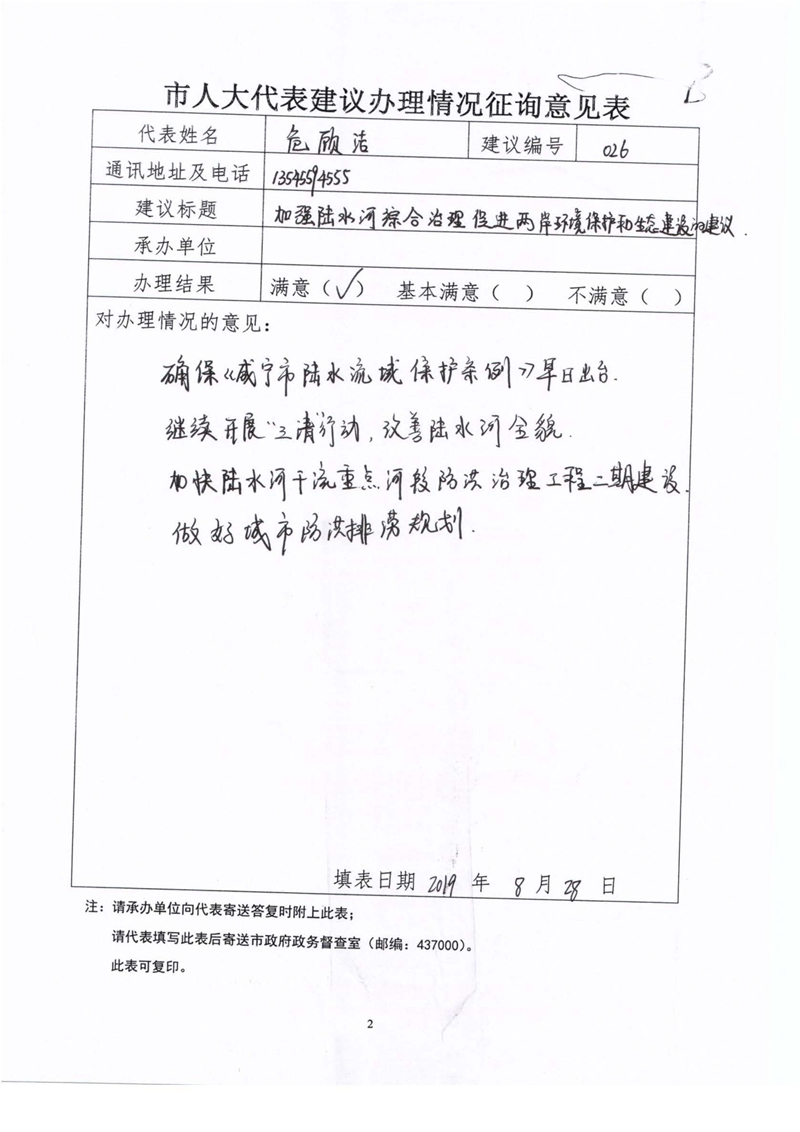 市人大代表建议办理情况征询意见表
代表姓名 危颀洁 建议编号 026
通讯地址及电话 13545594555
建议标题 加强陆水河综合治理促进两岸环境保护和生态建设的建议.
承办单位
办理结果 满意(√) 基本满意( ) 不满意( )
对办理情况的意见:
确保《咸宁市陆水流域保护条例》早日出台.
继续开展"三清"行动,改善陆水河全貌.
加快陆水河干流重点河段防洪治理工程二期建设.
做好城市防洪排涝规划.
填表日期 2019 年 8 月 28 日
注:请承办单位向代表寄送答复时附上此表;
请代表填写此表后寄送市政府政务督查室(邮编:437000)。
此表可复印。
2